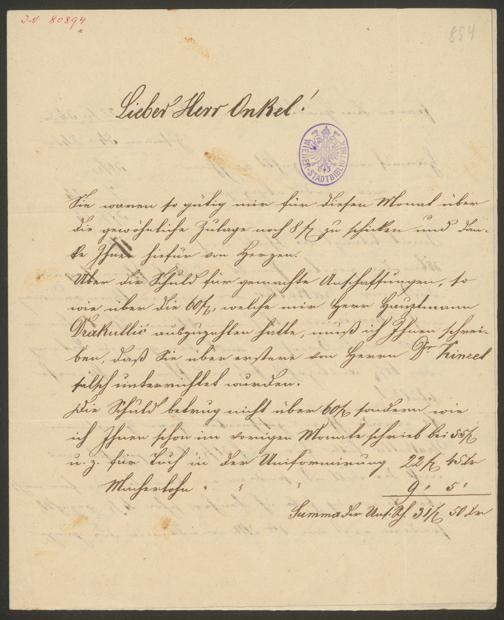 I.N 80894
854
Lieber Herr Onkel!
WIENER STADTBIBLIOTHEK
Sie waren so gütig mir für diesen Monat über
die gewöhnliche Zulage noch 8 f zu schicken und dan-
ke Ihnen hiefür von Herzen.
Über die Schuld für gemachte Anschaffungen, so
wie über die 60 f, welche mir Herr Hauptmann
Drakullić auszuzahlen hatte, muß ich Ihnen schrei-
ben, daß Sie über erstere von Herrn Dr
falsch unterrichtet wurden.
Die Schuld betrug nicht über 60 f sondern wie
ich Ihnen schon im vorigen Monate schrieb bei 55 f
u. z. für Tuch in der Uniformirung 22 f 45 kr
Macherlohn " " " 9 " 5 "
Summa der 31 f 50 kr